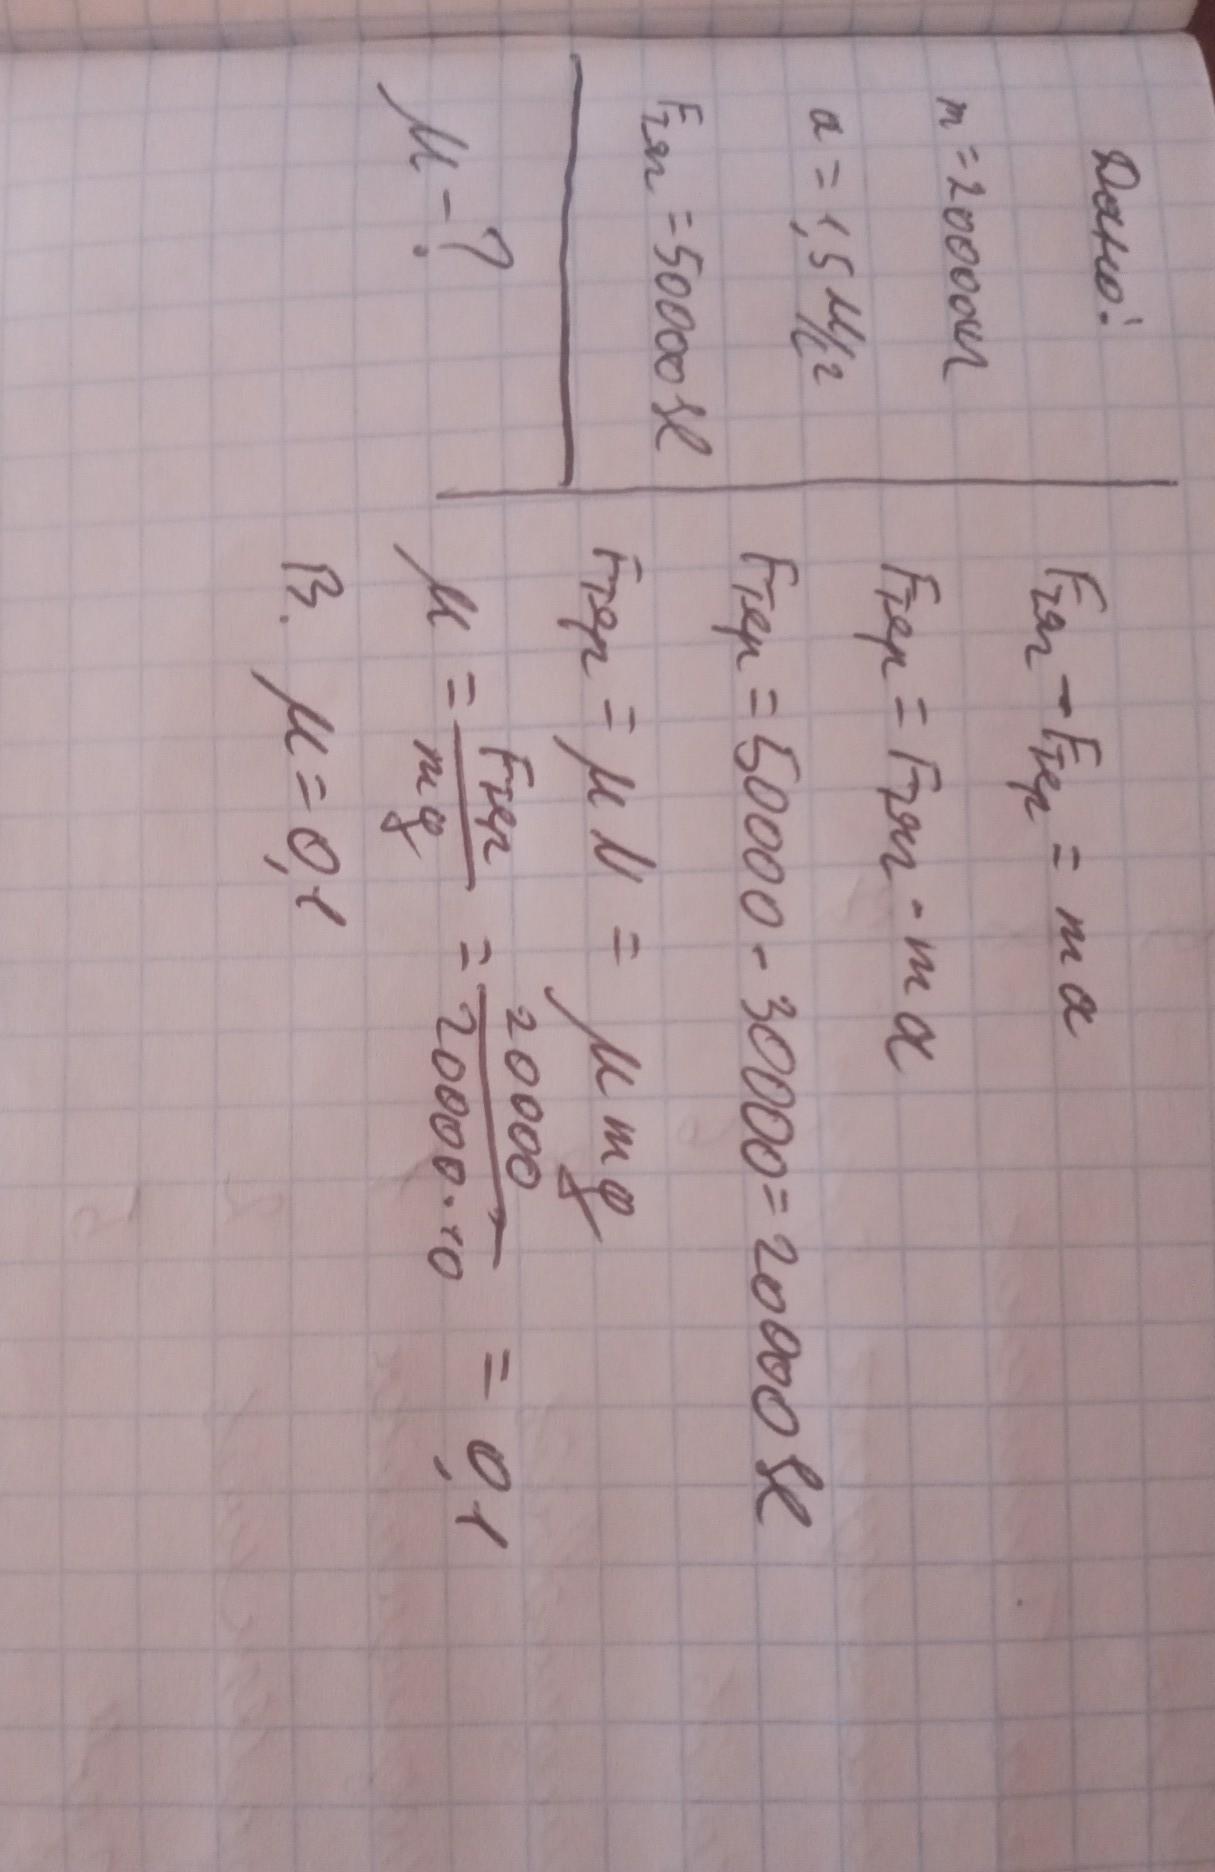 Дано:
m = 20000кг
a = 1,5 м/с²
Fтяг = 50000 Н
μ - ?
Fтяг - Fтер = ma
Fтер = Fтяг - ma
Fтер = 50000 - 30000 = 20000 Н
Fтер = μN = μmg
μ = Fтер / mg = 20000 / 20000·10 = 0,1
В. μ = 0,1